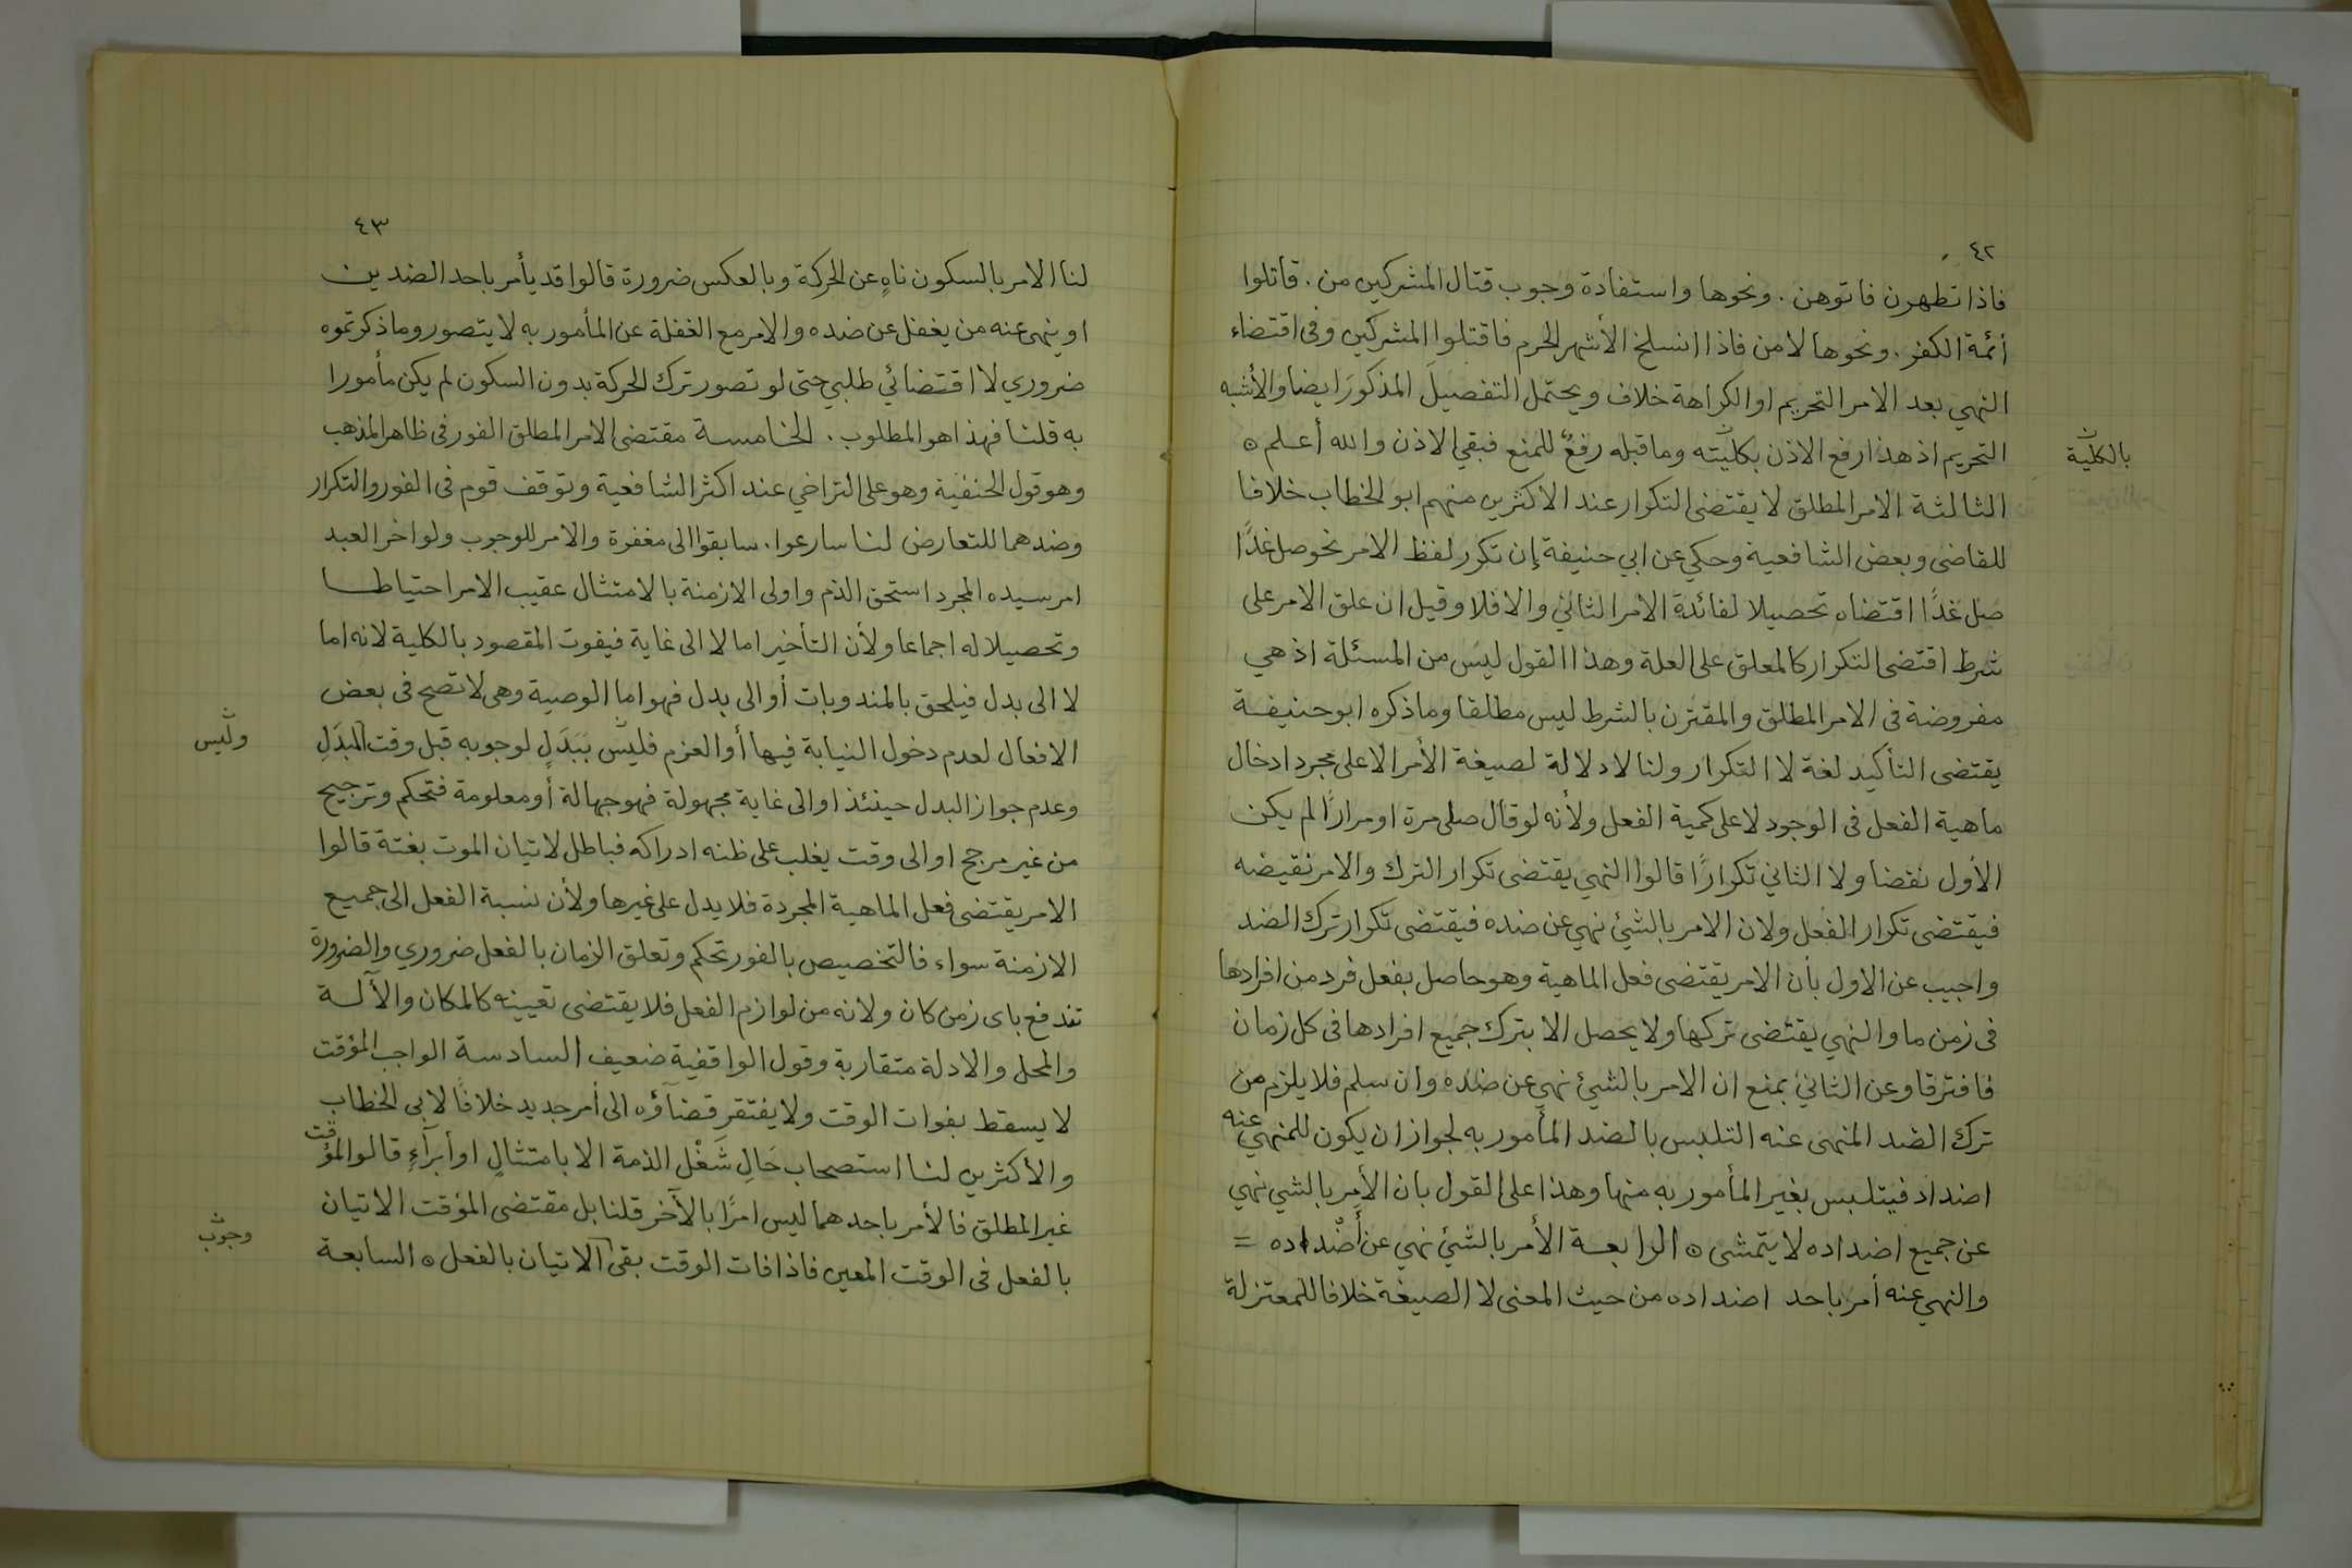 ٤٢
فاذا تطهرن فاتوهن . ونحوها واستفادة وجوب قتال المشركين من . قاتلوا
أئمة الكفر . ونحوها لا من فاذا انسلخ الأشهر الحرم فاقتلوا المشركين وفى اقتضاء
النهي بعد الامر التحريم او الكراهة خلاف ويحتمل التفصيلَ المذكورَ ايضا والأشبه
التحريم اذ هذا رفع الاذن بكليّته وما قبله رفعٌ للمنع فبقي الاذن والله أعلم ه
بالكليّة
الثالثة الامر المطلق لا يقتضى التكرار عند الاكثرين منهم ابو الخطاب خلافا
للقاضى وبعض الشافعية وحكي عن ابي حنيفة إن تكرر لفظ الامر نحو صل غدًا
صل غدًا اقتضاه تحصيلا لفائدة الامر الثاني والا فلا وقيل ان علق الامر على
شرط اقتضى التكرار كالمعلق على العلة وهذا القول ليس من المسئلة اذ هي
مفروضة فى الامر المطلق والمقترن بالشرط ليس مطلقا وما ذكره ابو حنيفة
يقتضى التأكيد لغة لا التكرار ولنا لا دلالة لصيغة الأمر الا على مجرد ادخال
ماهية الفعل فى الوجود لا على كمية الفعل ولأنه لو قال صلى مرة او مرارًا لم يكن
الأول نقضا ولا الثاني تكرارًا قالوا النهي يقتضى تكرار الترك والامر نقيضه
فيقتضى تكرار الفعل ولان الامر بالشئ نهي عن ضده فيقتضى تكرار ترك الضد
واجيب عن الاول بأن الامر يقتضى فعل الماهية وهو حاصل بفعل فرد من افرادها
فى زمن ما والنهي يقتضى تركها ولا يحصل الا بترك جميع افرادها فى كل زمان
فافترقا وعن الثاني بمنع ان الامر بالشئ نهي عن ضده وان سلم فلا يلزم من
ترك الضد المنهى عنه التلبس بالضد المأمور به لجواز ان يكون للمنهي عنه
اضداد فيتلبس بغير المأمور به منها وهذا على القول بان الأمر بالشي نهي
عن جميع اضداده لا يتمشى ه الرابعة الأمر بالشئ نهي عن أضداده =
والنهي عنه أمر باحد اضداده من حيث المعنى لا الصيغة خلافا للمعتزلة
٤٣
لنا الامر بالسكون ناهٍ عن الحركة وبالعكس ضرورة قالوا قد يأمر باحد الضدين
او ينهى عنه من يغفل عن ضده والامر مع الغفلة عن المأمور به لا يتصور وما ذكرتموه
ضروري لا اقتضائي طلبي حتى لو تصور ترك الحركة بدون السكون لم يكن مأمورا
به قلنا فهذا هو المطلوب . الخامسة مقتضى الامر المطلق الفور فى ظاهر المذهب
وهو قول الحنفية وهو على التراخي عند اكثر الشافعية وتوقف قوم فى الفور والتكرار
وضدهما للتعارض لنا سارعوا . سابقوا الى مغفرة والامر للوجوب ولو اخر العبد
امر سيده المجرد استحق الذم واولى الازمنة بالامتثال عقيب الامر احتياطا
وتحصيلا له اجماعا ولأن التأخير اما لا الى غاية فيفوت المقصود بالكلية لانه اما
لا الى بدل فيلحق بالمندوبات أو الى بدل فهو اما الوصية وهى لا تصح فى بعض
الافعال لعدم دخول النيابة فيها أو العزم فليس بَبَدَلٍ لوجوبه قبل وقت المبدَلِ
وليس
وعدم جواز البدل حينئذ او الى غاية مجهولة فهو جهالة أو معلومة فتحكم وترجيح
من غير مرجح او الى وقت يغلب على ظنه ادراكه فباطل لاتيان الموت بغتة قالوا
الامر يقتضى فعل الماهية المجردة فلا يدل على غيرها ولأن نسبة الفعل الى جميع
الازمنة سواء فالتخصيص بالفور تحكم وتعلق الزمان بالفعل ضروري والضرورة
تندفع باى زمن كان ولانه من لوازم الفعل فلا يقتضى تعيينه كالمكان والآلة
والمحل والادلة متقاربة وقول الواقفية ضعيف السادسة الواجب المؤقت
لا يسقط بفوات الوقت ولا يفتقر قضآؤه الى أمر جديد خلافًا لابى الخطاب
والأكثرين لنا استصحاب حَالِ شَغْل الذمة الا بامتثالٍ او أبرآءٍ قالوا المؤقت
غير المطلق فالأمر باحدهما ليس امرًا بالآخر قلنا بل مقتضى المؤقت الاتيان
بالفعل فى الوقت المعين فاذا فات الوقت بقى الاتيان بالفعل ه السابعة
وجوب